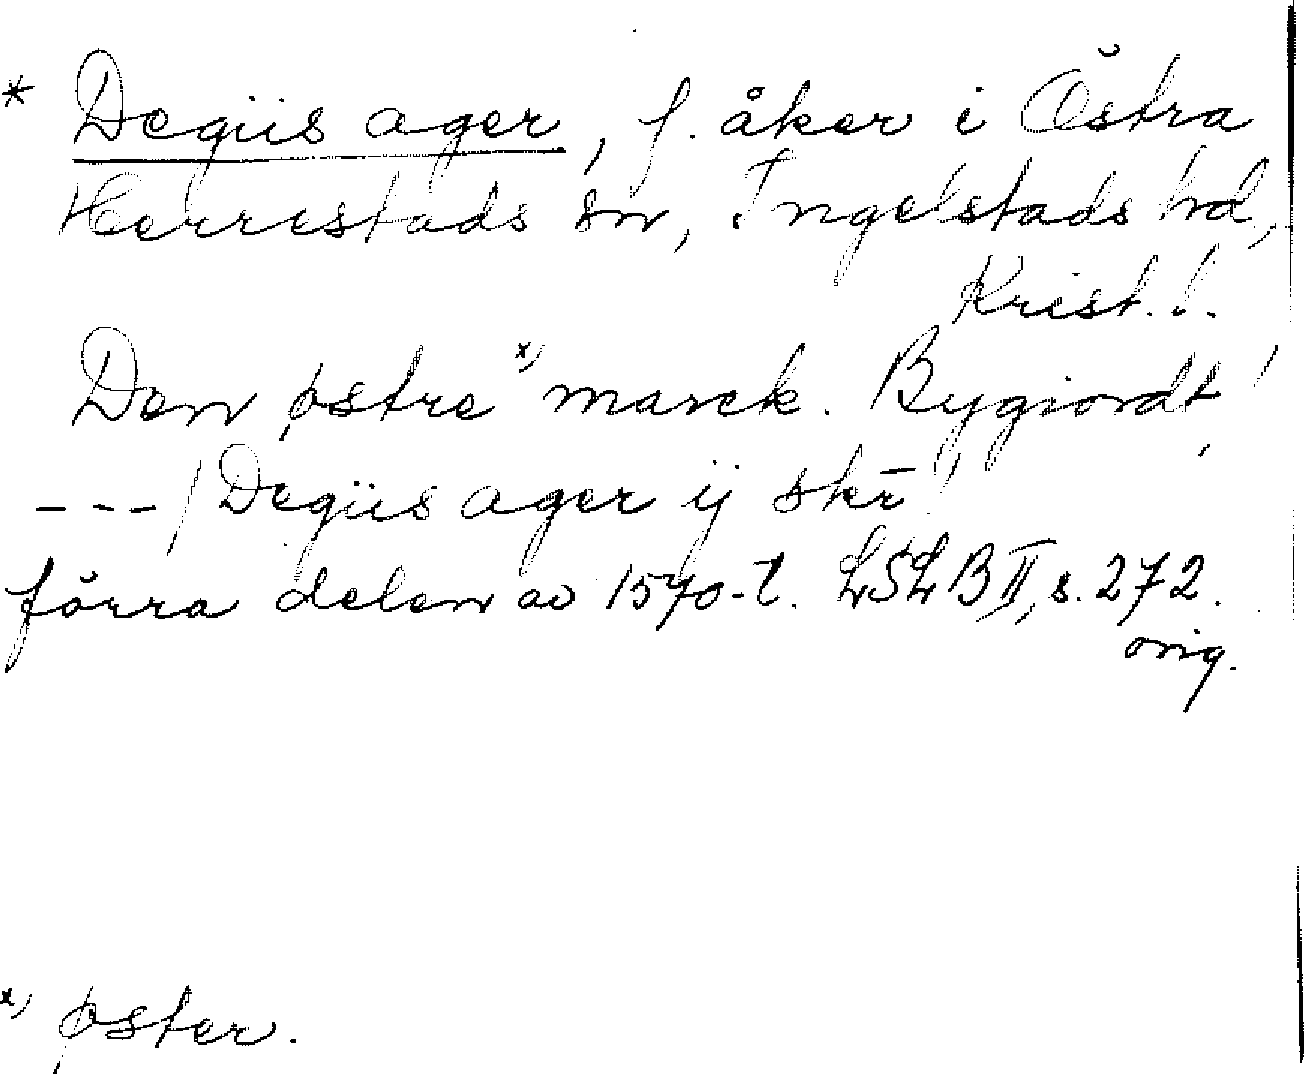 * Degüs ager, f. åker i Östra
Herrestads sn, Ingelstads hd,
Krist. l.
Den østre x) marck. Bygiordt /
--- / Degüs ager ij skr̄ /
förra delen av 1570-t. LSLB II, s. 272.
orig.
x) øster.